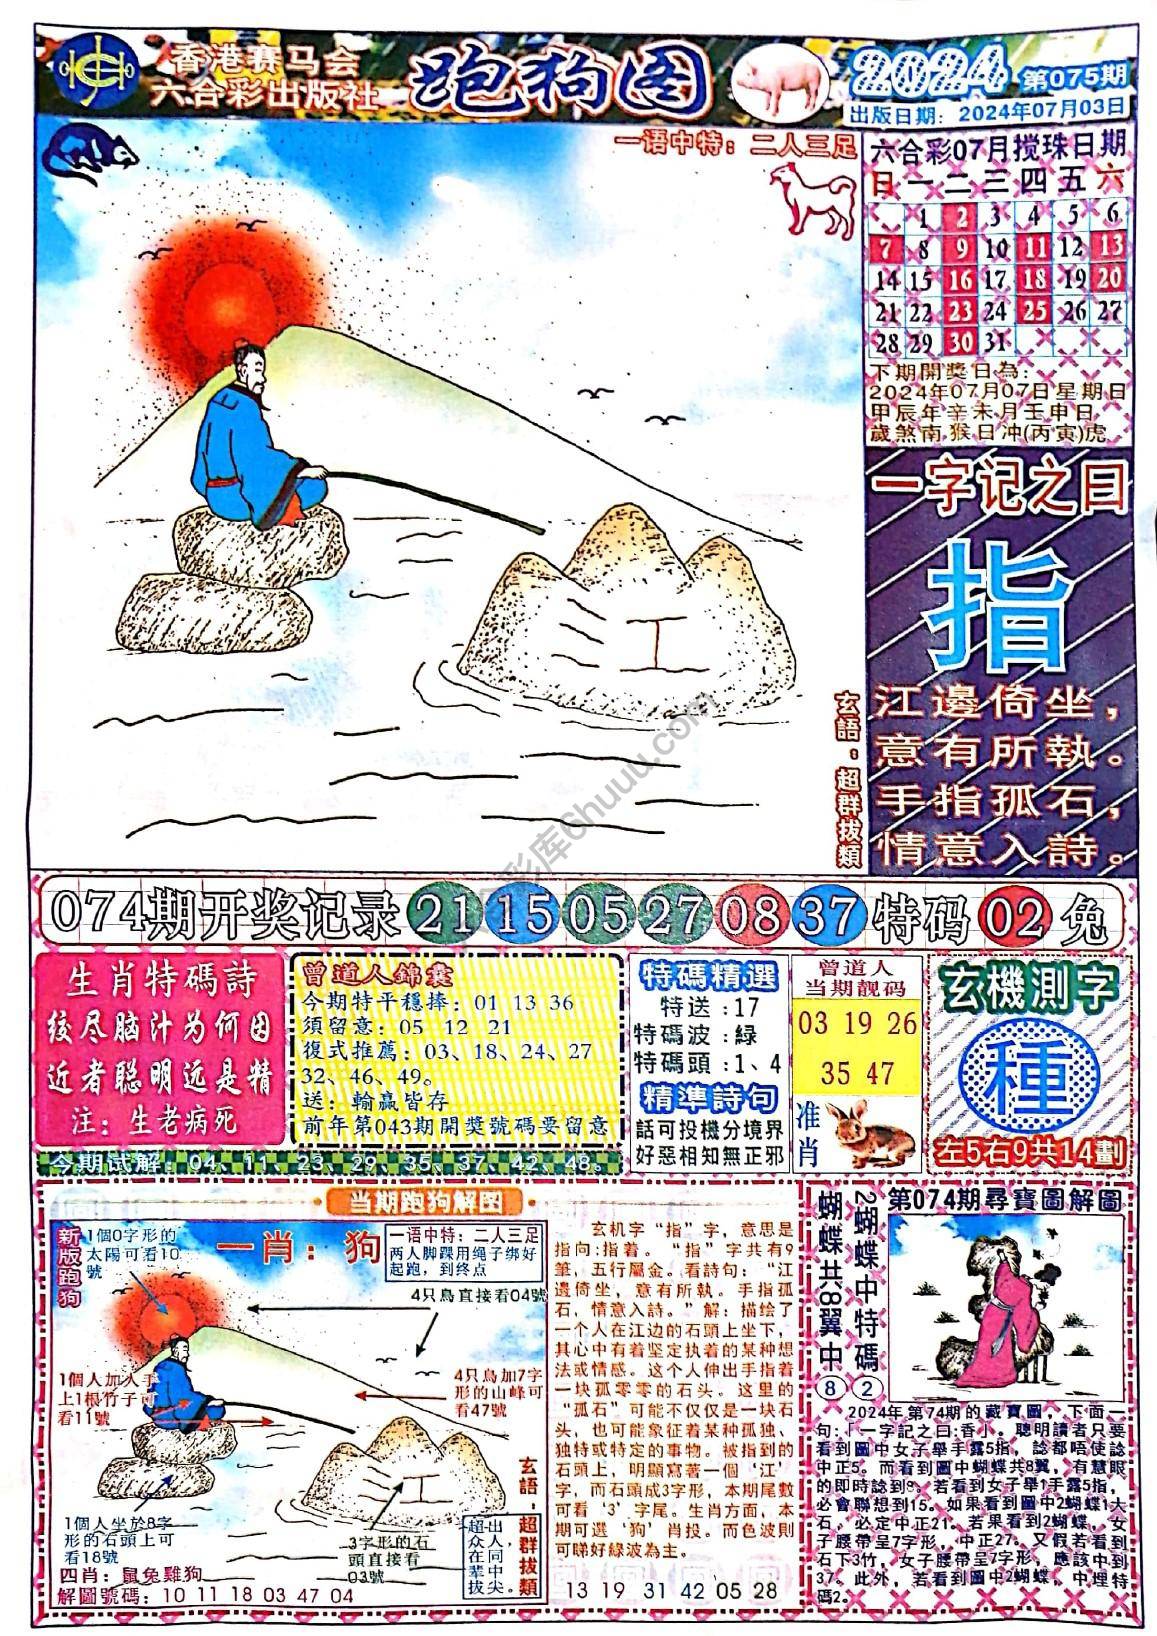 香港赛马会
六合彩出版社
跑狗图
2024 第075期
出版日期：2024年07月03日
一语中特：二人三足
六合彩07月搅珠日期
日一二三四五六
1 2 3 4 5 6
7 8 9 10 11 12 13
14 15 16 17 18 19 20
21 22 23 24 25 26 27
28 29 30 31
下期開獎日為：
2024年07月07日星期日
甲辰年辛未月壬申日
歲煞南猴日冲(丙寅)虎
一字记之曰
指
江邊倚坐，
意有所執。
手指孤石，
情意入詩。
玄語：超群拔類
江
074期开奖记录 21 15 05 27 08 37 特码 02 兔
生肖特碼詩
绞尽脑汁为何因
近者聪明远是精
注：生老病死
曾道人錦囊
今期特平穩捧：01 13 36
須留意：05 12 21
復式推薦：03、18、24、27
32、46、49。
送：輸贏皆存
前年第043期開獎號碼要留意
今期试解：04、11、23、29、35、37、42、48。
特碼精選
特送：17
特碼波：緑
特碼頭：1、4
精準詩句
話可投機分境界
好惡相知無正邪
曾道人
当期靓码
03 19 26
35 47
准肖
玄機測字
種
左5右9共14劃
当期跑狗解图
新版跑狗
1個0字形的
太陽可看10
號
一肖：狗
一语中特：二人三足
两人脚踝用绳子绑好
起跑，到终点
4只鳥直接看04號
1個人加人手
上1根竹子可
看11號
4只鳥加7字
形的山峰可
看47號
1個人坐於8字
形的石頭上可
看18號
3字形的石
頭直接看
03號
玄語：超群拔類
超出
众人，
在同
辈中
拔尖。
四肖：鼠兔雞狗
解圖號碼：10 11 18 03 47 04
玄机字“指”字，意思是
指向:指着。“指”字共有9
筆，五行屬金。看詩句：“江
邊倚坐，意有所執。手指孤
石，情意入詩。”解：描绘了
一个人在江边的石頭上坐下，
其心中有着坚定执着的某种想
法或情感。这个人伸出手指着
一块孤零零的石头。这里的
“孤石”可能不仅仅是一块石
头，也可能象征着某种孤独、
独特或特定的事物。被指到的
石頭上，明顯寫著一個‘江’
字，而石頭成3字形，本期尾數
可看‘3’字尾。生肖方面，本
期可選‘狗’肖投。而色波則
可睇好綠波為主。
13 19 31 42 05 28
蝴蝶共8翼中⑧
2蝴蝶中特碼②
第074期尋寶圖解圖
2024年第74期的藏寶圖，下面一
句：「一字記之曰:香小。聰明讀者只要
看到圖中女子舉手露5指，諗都唔使諗
中正5。而看到圖中蝴蝶共8翼，有慧眼
的即時諗到8。若看到女子舉1手露5指，
必會聯想到15。如果看到圖中2蝴蝶1大
石，必定中正21。若果看到2蝴蝶，女
子腰帶呈7字形，中正27。又假若看到
石下3竹，女子腰帶呈7字形，應該中到
37。此外，若看到圖中2蝴蝶，中埋特
碼2。
彩库6huuu.com